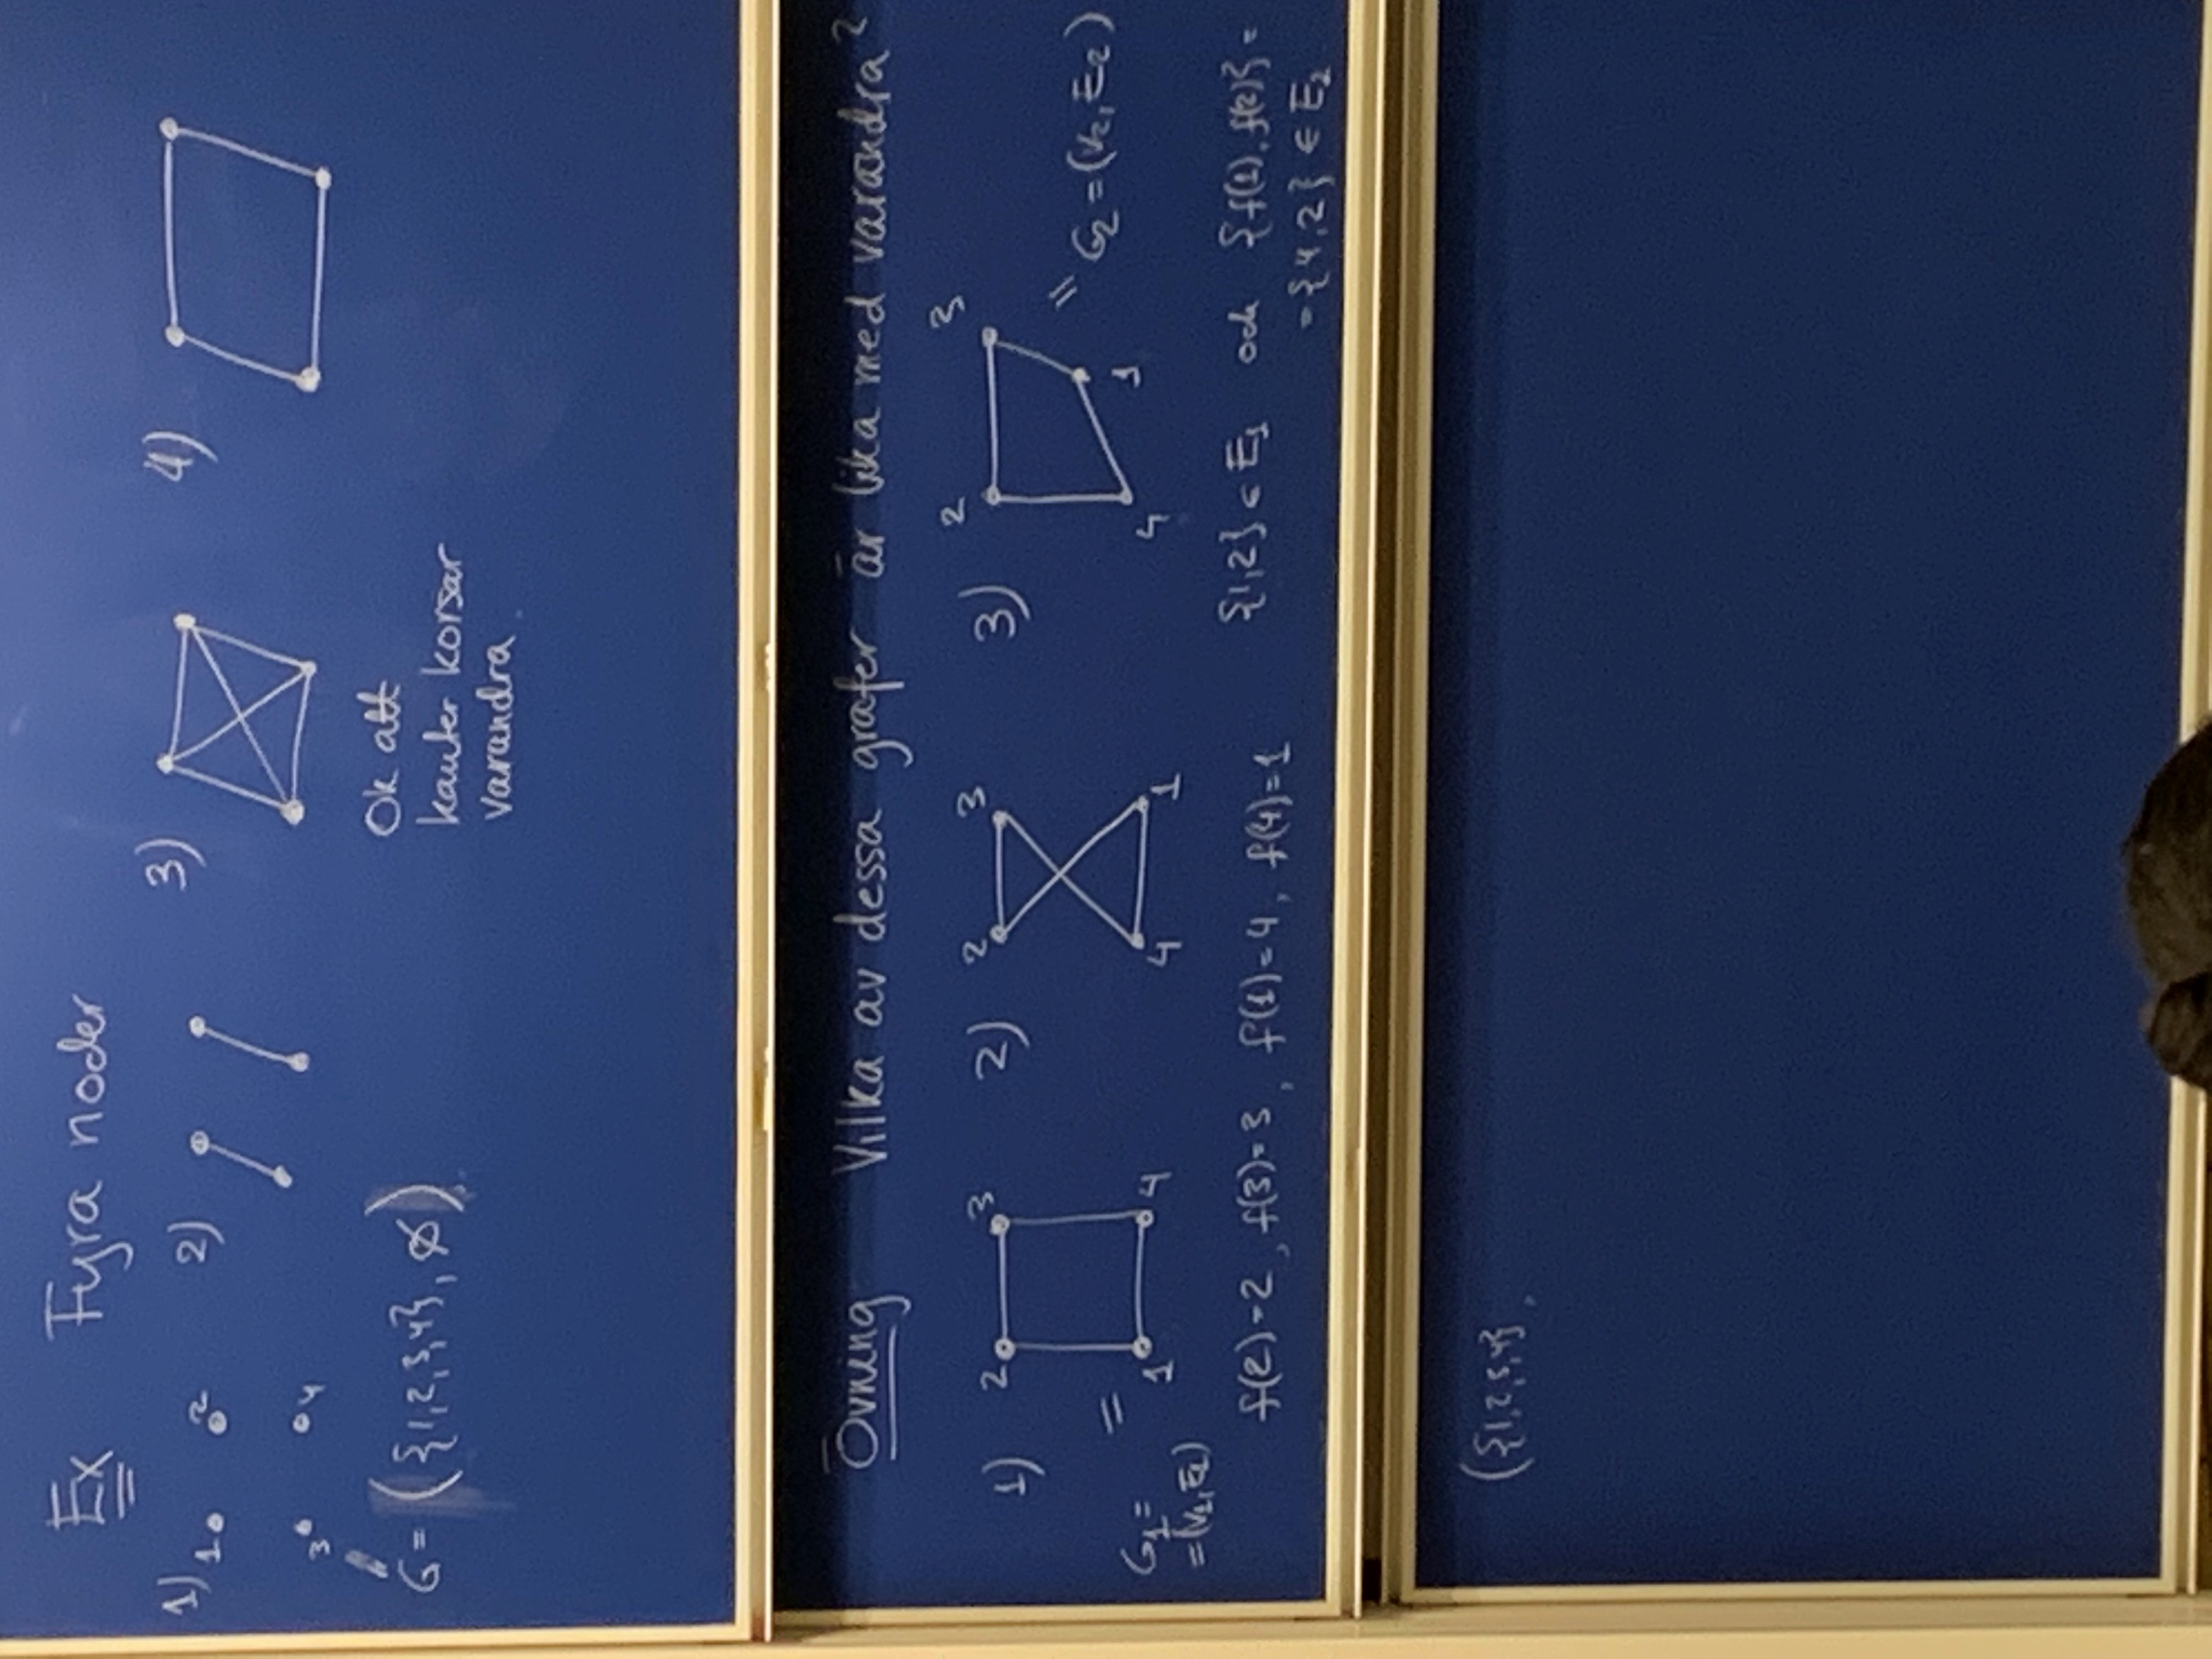 Ex Fyra noder
1) 1 2 2) 3) 4)
3 4
Ok att
kanter korsar
varandra.
G = ({1,2,3,4}, ∅).
Övning Vilka av dessa grafer är lika med varandra?
1) 2 3 2) 2 3 3) 2 3
= 1 4 4 1 4 1
= G2 = (V2, E2)
G1 =
= (V1, E1)
f(2)=2, f(3)=3, f(1)=4, f(4)=1 {1,2} ∈ E1 och {f(1), f(2)} =
= {4,2} ∈ E2
({1,2,3,4},